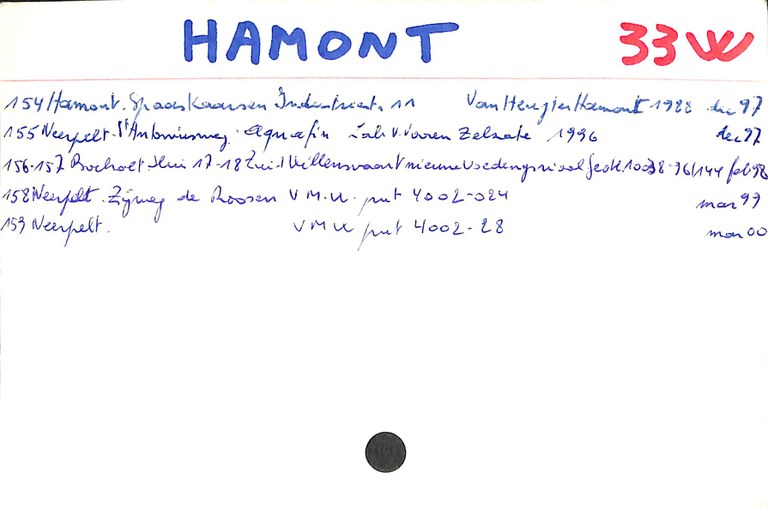 HAMONT 33W
154 Hamont. Spaas Kaarsen Industriestr. 11 Van Hengten Hamont 1988 dec 97
155 Neerpelt. St Antoniusweg. Aquafin Lab v. Vooren Zelzate 1996 dec 97
156-157 Bocholt Sluis 17-18 Zuid Willemsvaart nieuwe voedingsriool 36/144 feb 98
158 Neerpelt. Zijweg de Roosen V M W. put 4002-024 mar 99
159 Neerpelt. V M W put 4002-28 mar 00